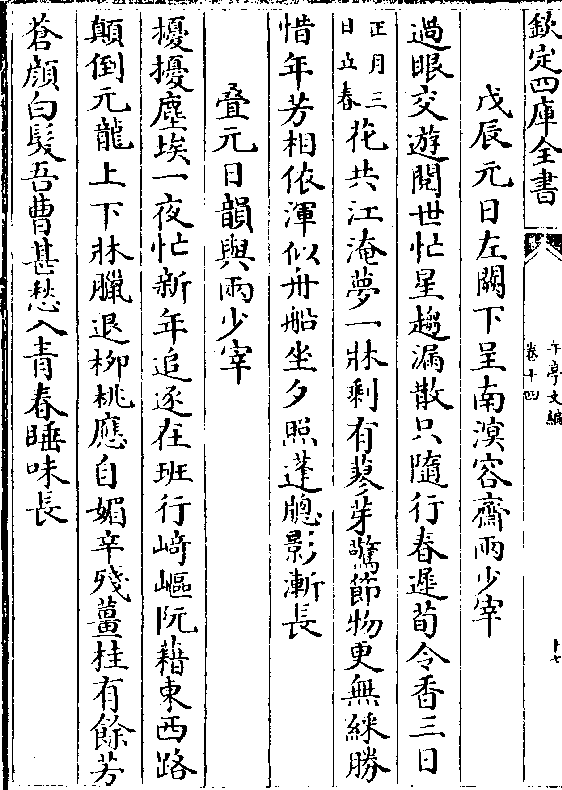 欽定四庫全書
午亭文編
卷十四
十七
戊辰元日左闕下呈南溟容齋兩少宰
過眼交遊閱世忙星趨漏散只隨行春遲荀令香三日
正月三日立春
花共江淹夢一牀剩有蓼芽驚節物更無綵勝
惜年芳相依渾似舟船坐夕照蓬牕影漸長
疊元日韻與兩少宰
擾擾塵埃一夜忙新年追逐在班行﨑嶇阮藉東西路
顛倒元龍上下牀臘退柳桃應自媚辛殘薑桂有餘芳
蒼顔白髮吾曹甚愁入青春睡味長